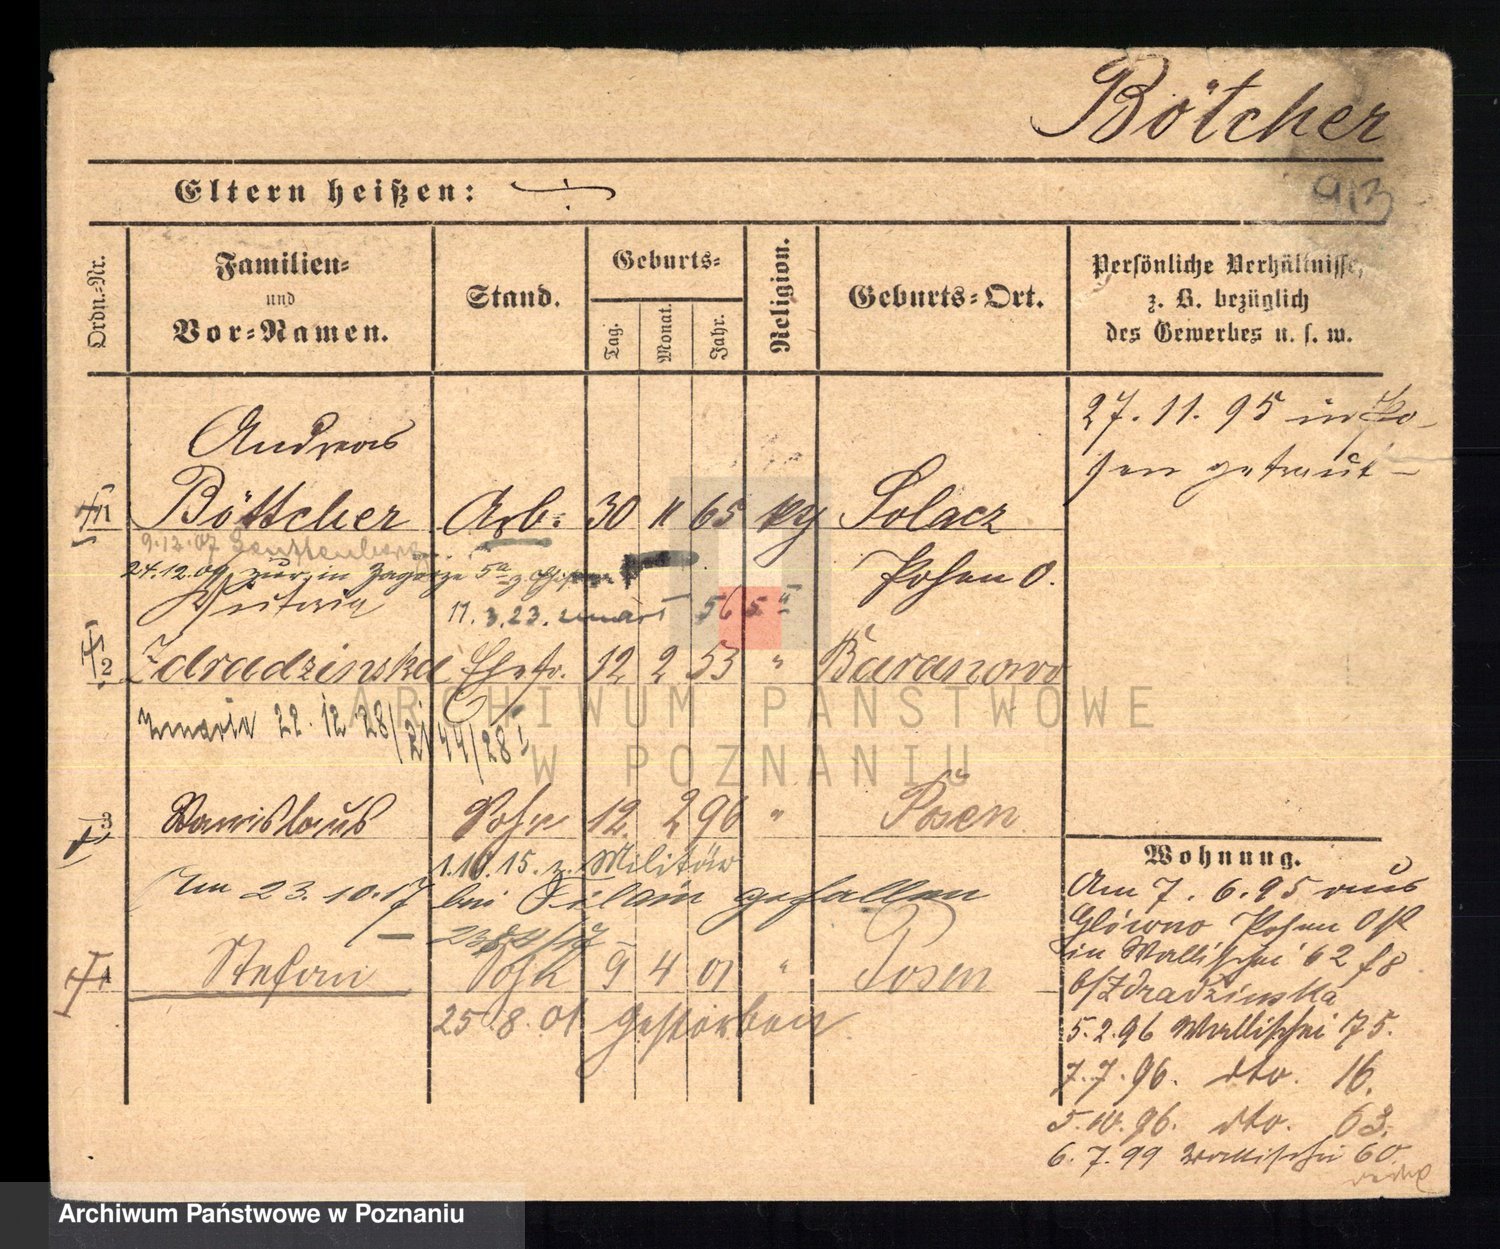 Bötcher
Eltern heißen:
913
Ordn.-Nr.
Familien-
und
Vor-Namen.
Stand.
Geburts-
Tag.
Monat.
Jahr.
Religion.
Geburts-Ort.
Persönliche Verhältnisse,
z. B. bezüglich
des Gewerbes u. s. w.
27. 11. 95 in Po-
sen getraut
Andreas
1 Böttcher Arb. 30 11 65 Solacz
9.12.07
Posen O.
24.12.09 zur. in
17.3.23. 
2 Zdradzinska Ehefr. 12 2 53 " Baranowo
22. 12 28
3 Stanislaus Sohn 12. 2 96 " Posen
1.10.15. z. Militär
Am 23.10.17 bei Filain gefallen
4 Stefan Sohn 9 4 01 " Posen
25.8.01 gestorben
Wohnung.
Am 7. 6. 95 aus
Glówno Posen Ost
in Wallischei 62
b/Zdradzinska
5.2.96 Wallischei 75.
7.7.96. dto. 16.
5.10.96. dto. 63.
6.7.99 Wallischei 60.
ARCHIWUM PAŃSTWOWE
W POZNANIU
Archiwum Państwowe w Poznaniu